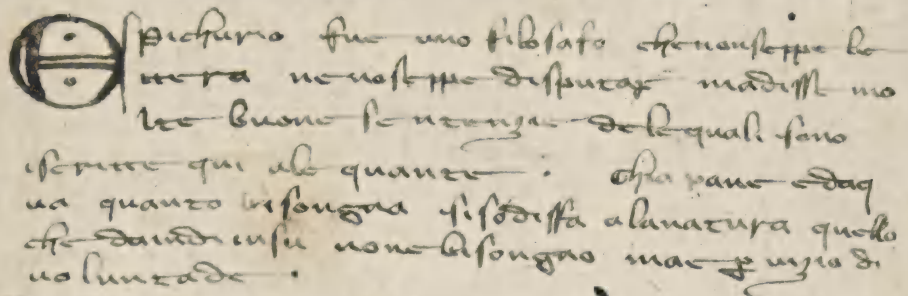 Epichurio fue uno filosafo che non seppe le
ttera ne no seppe disputar madisse mo
lte buone sentenzie dele quali sono
iscritte qui ale quante . Chia pane edaq
ua quanto bisongna si sodisffa alanatura quello
che daindi insu none bisongno mae p uizio di
uoluntade .